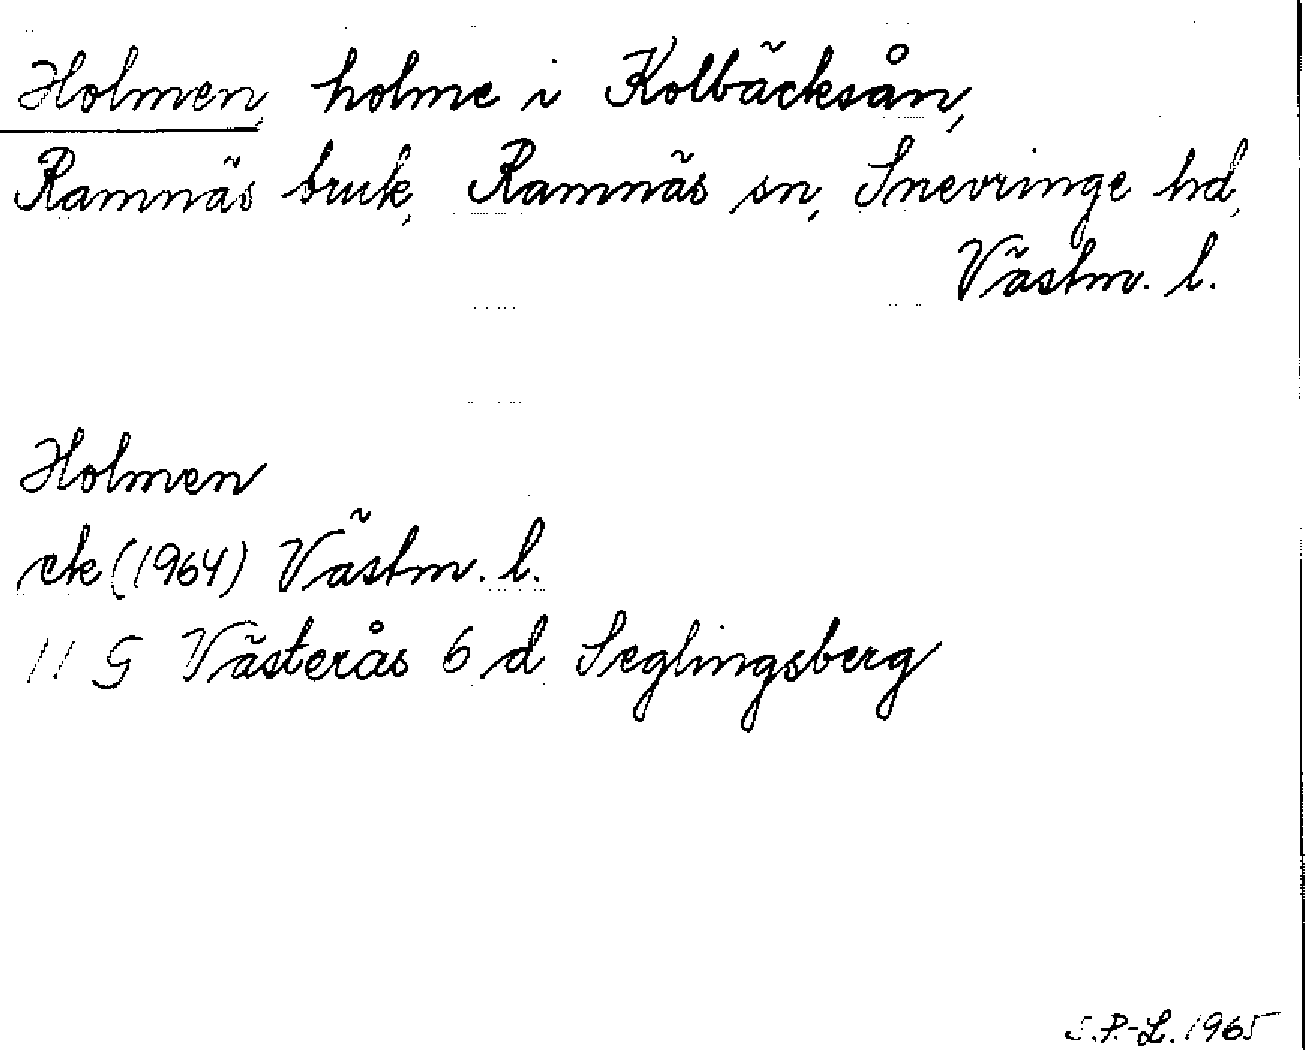 Holmen, holme i Kolbäcksån,
Ramnäs bruk, Ramnäs sn, Snevringe hd,
Västm. l.
Holmen
ek (1964) Västm. l.
11 G Västerås 6 d Seglingsberg
S.P.-L. 1965